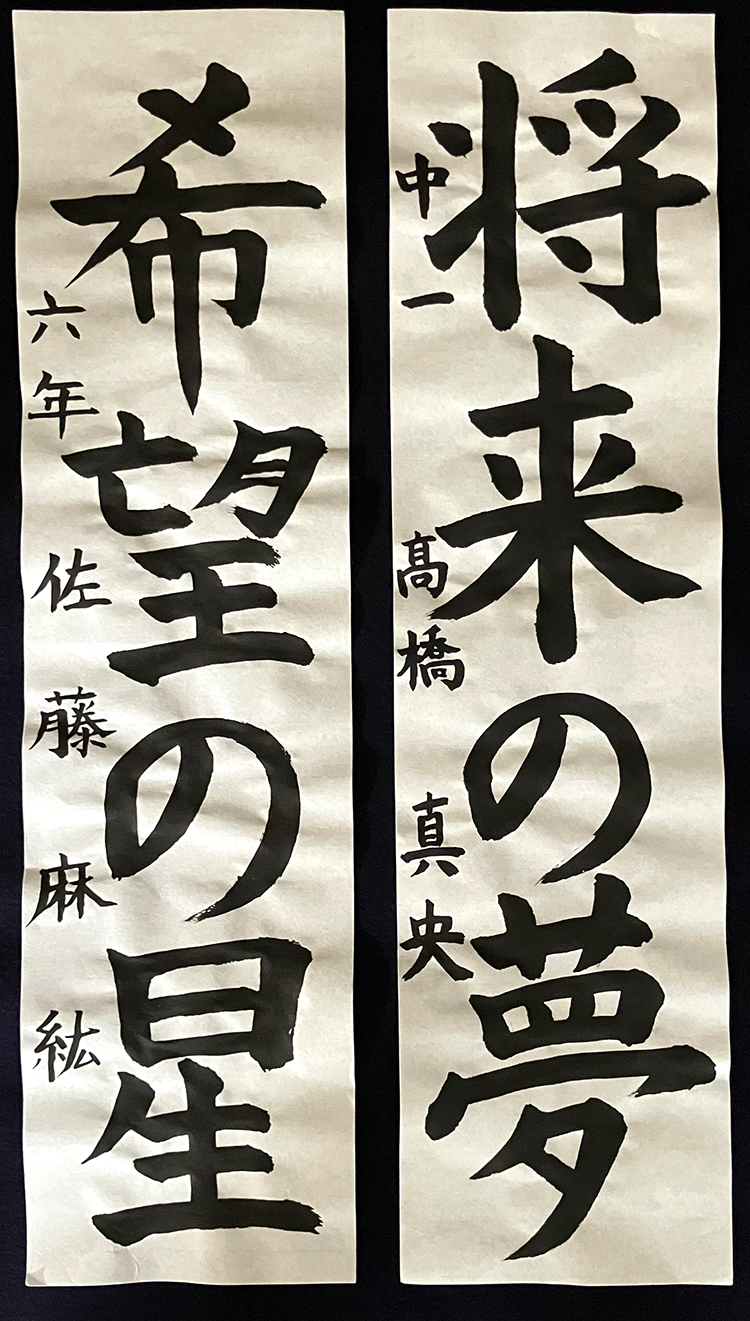 将来の夢
中一 高橋 真央
希望の星
六年 佐藤 麻紘